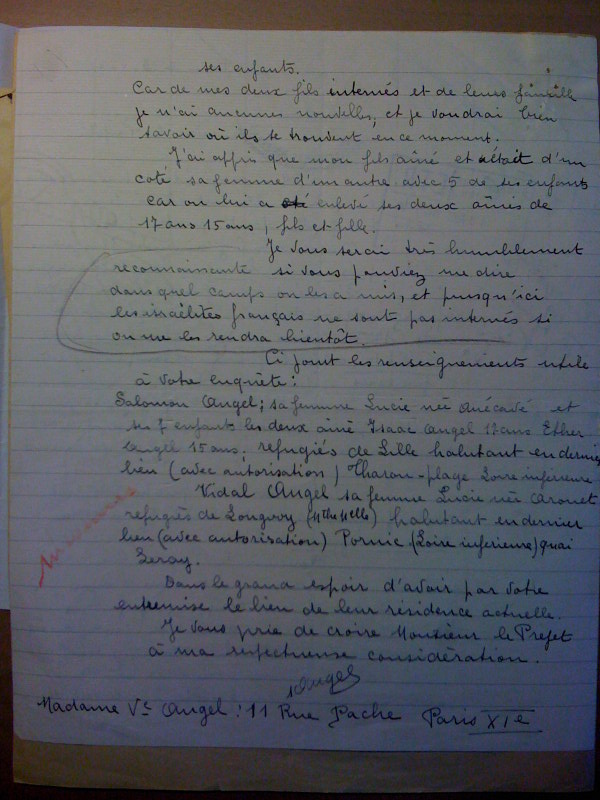 ses enfants.
Car de mes deux fils internés et de leurs famille
je n'ai aucunes nouvelles, et je voudrai bien
savoir où ils se trouvent en ce moment.
J'ai appris que mon fils aîné et était d'un
coté sa femme d'un autre avec 5 de ses enfants
car on lui a été enlevé ses deux aînés de
17 ans 15 ans, fils et fille.
Je vous serai très humblement
reconnaissante si vous pouviez me dire
dans quel camps on les a mis, et puisqu'ici
les israélites français ne sont pas internés si
on me les rendra bientôt.
Ci joint les renseignements utile
à votre enquête :
Salomon Angel ; sa femme Lucie née et
ses 7 enfants les deux aîné Isaac Angel 17 ans Esther
Angel 15 ans, refugiés de Lille habitant en dernier
lieu (avec autorisation) Tharon-plage Loire inférieure
Vidal Angel sa femme Lucie née Carouet
refugiés de Longwy (Mthe Mlle) habitant en dernier
lieu (avec autorisation) Pornic (Loire inférieure) quai
Leray.
Dans le grand espoir d'avoir par votre
entremise le lieu de leur résidence actuelle.
Je vous prie de croire Monsieur le Préfet
à ma respectueuse considération.
Angel
Madame Ve Angel : 11 Rue Pache Paris XIe